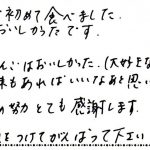 初めて食べました.
おいしかったです.
んごはおいしかった.(大好きな
味もあればいいなあと思い
の努力とても感謝します.
をつけてがんばって下さい